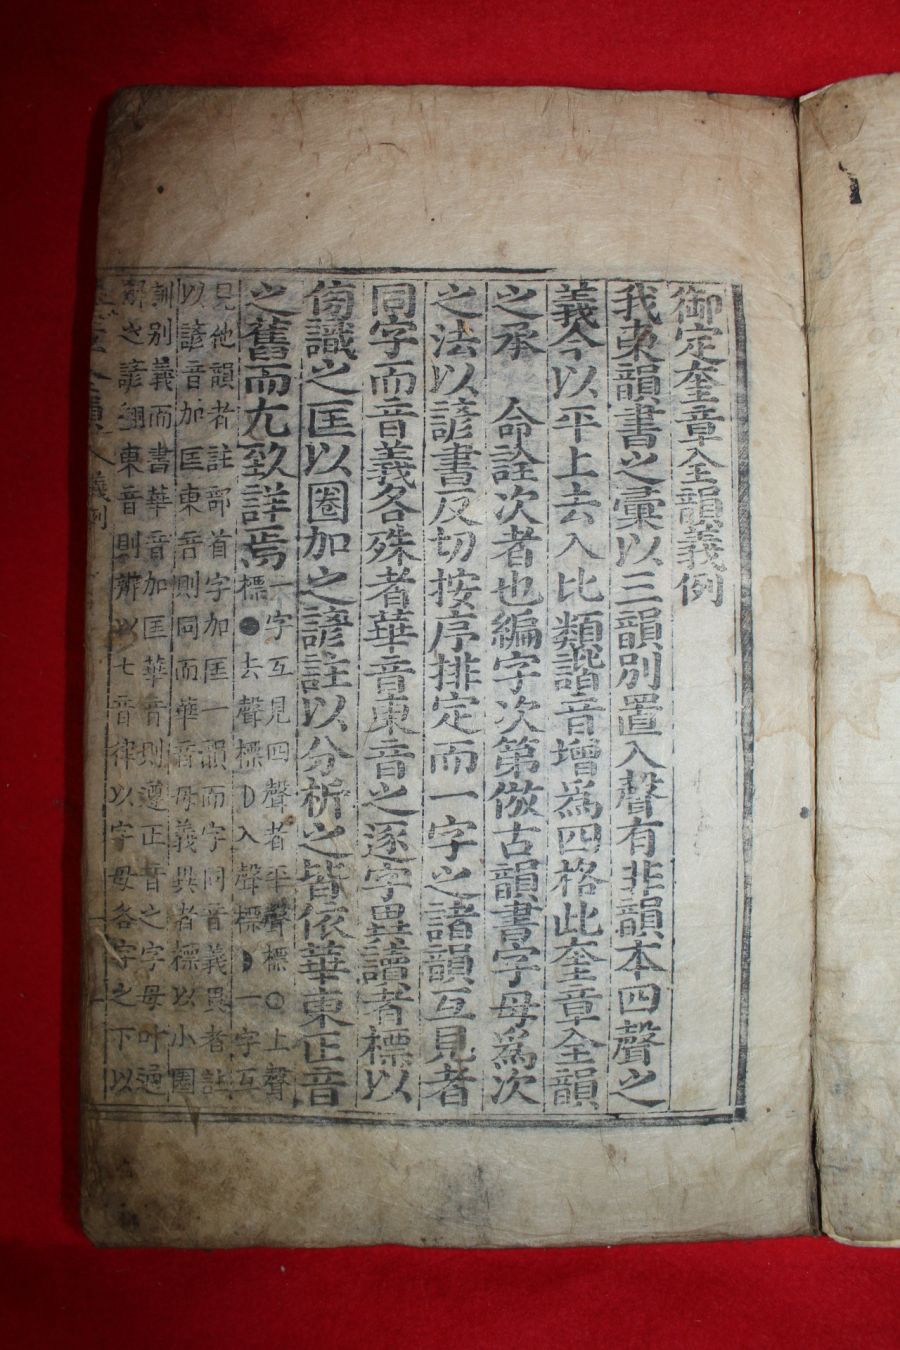 御定奎章全韻義例
我東韻書之彙以三韻別置入聲有非韻本四聲之
義今以平上去入比類諧音增為四格此奎章全韻
之承 命詮次者也編字次第倣古韻書字母為次
之法以諺書反切按序排定而一字之諸韻互見者
同字而音義各殊者華音東音之逐字異讀者標以
傍識之匡以圈加之諺註以分析之皆依華東正音
之舊而尤致詳焉
一字互見四聲者平聲標○上聲
標●去聲標◗入聲標◗一字互
見他韻者註部首字加匡一韻而字同音義異者註
以諺音加匡東音則同而華音母義異者標以小圈
訓別義而書華音加匡華音則遵正音之字母叶過
東音則
以七音律以字母各字之下以
義例